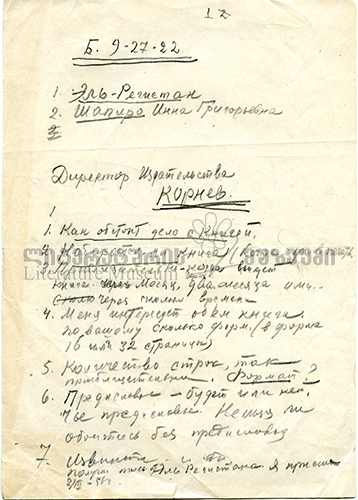 12
Б. 9-27-22
1. Эль-Регистан
2. Шапиро Инна Григорьевна
3.
Директор Издательства
Корнев.
1
1. Как обстоит дело с книгой.
ლიტერატურის მუზეუმი
Literature Museum
когда выйдет
книга через месяц, два месяца или
через сколько времени
4. Меня интересует объем книги
по вашему сколько форм, (в форме
16 или 32 страницы)
5. Количество строк, так
приблизительно. Формат?
6. Предисловье – будет или нет,
чье предисловье. Нельзя ли
обойтись без предисловья
7. Извините
Эль Регистана я